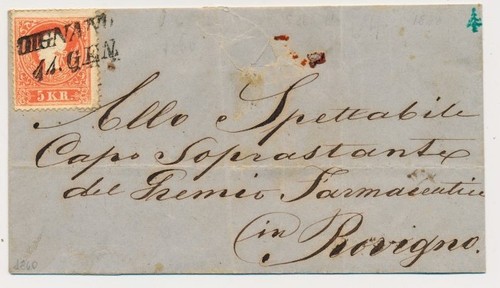 DIGNANO
14. GEN.
5 KR.
Allo Spettabile
Capo Soprastante
del Gremio Farmaceutico
in Rovigno.
1860